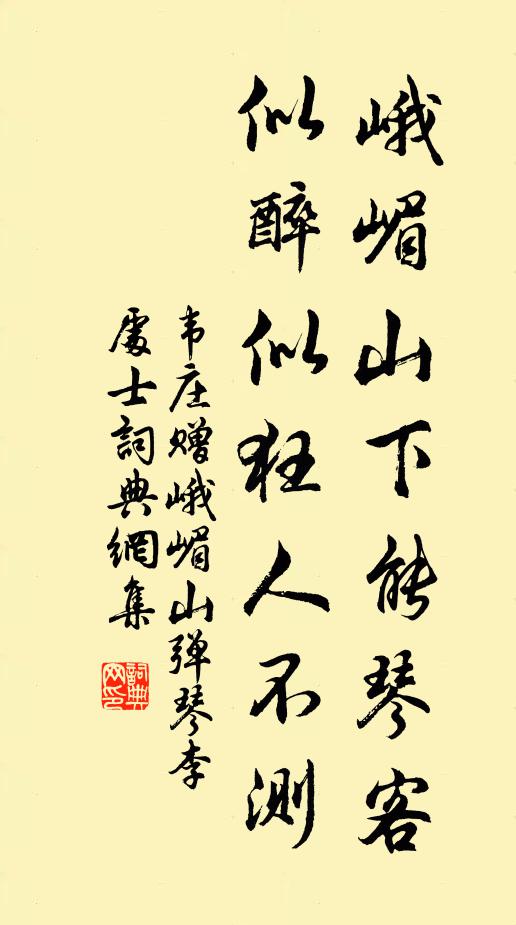 峨嵋山下能琴客
似醉似狂人不測
韦庄赠峨嵋山弹琴李
處士詞典網集
詞典
网印